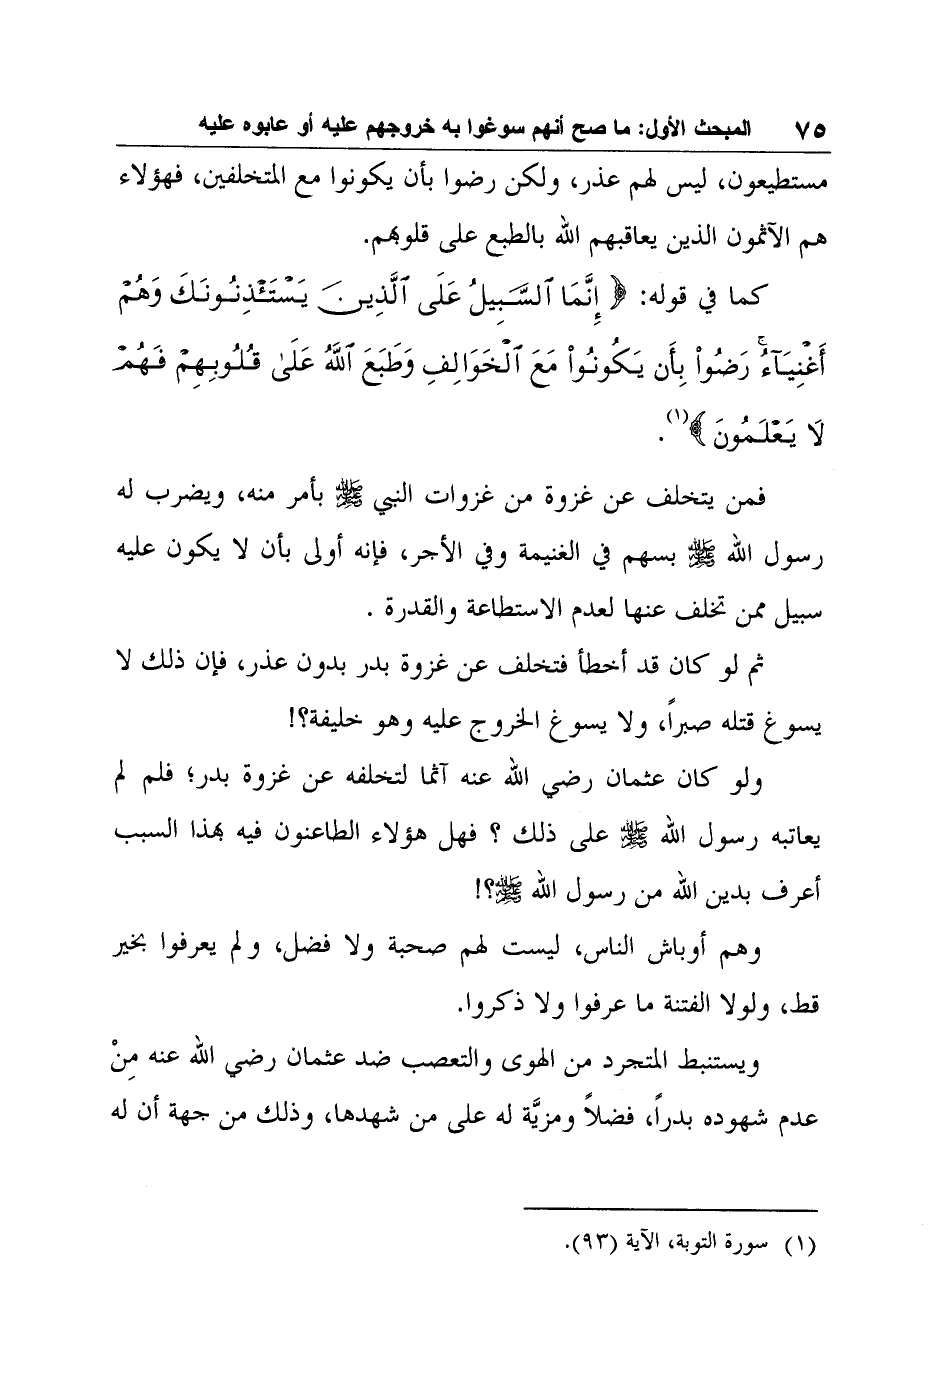 ٧٥ المبحث الأول: ما صح أنهم سوغوا به خروجهم عليه أو عابوه عليه
مستطيعون، ليس لهم عذر، ولكن رضوا بأن يكونوا مع المتخلفين، فهؤلاء
هم الآثمون الذين يعاقبهم الله بالطبع على قلوبهم.
كما في قوله: ﴿ إِنَّمَا ٱلسَّبِيلُ عَلَى ٱلَّذِينَ يَسْتَـْٔذِنُونَكَ وَهُمْ
أَغْنِيَآءُ ۚ رَضُوا۟ بِأَن يَكُونُوا۟ مَعَ ٱلْخَوَالِفِ وَطَبَعَ ٱللَّهُ عَلَىٰ قُلُوبِهِمْ فَهُمْ
لَا يَعْلَمُونَ ﴾(١).
فمن يتخلف عن غزوة من غزوات النبي ﷺ بأمر منه، ويضرب له
رسول الله ﷺ بسهم في الغنيمة وفي الأجر، فإنه أولى بأن لا يكون عليه
سبيل ممن تخلف عنها لعدم الاستطاعة والقدرة .
ثم لو كان قد أخطأ فتخلف عن غزوة بدر بدون عذر، فإن ذلك لا
يسوغ قتله صبراً، ولا يسوغ الخروج عليه وهو خليفة؟!
ولو كان عثمان رضي الله عنه آثما لتخلفه عن غزوة بدر؛ فلم لم
يعاتبه رسول الله ﷺ على ذلك ؟ فهل هؤلاء الطاعنون فيه بهذا السبب
أعرف بدين الله من رسول الله ﷺ؟!
وهم أوباش الناس، ليست لهم صحبة ولا فضل، ولم يعرفوا بخير
قط، ولولا الفتنة ما عرفوا ولا ذكروا.
ويستنبط المتجرد من الهوى والتعصب ضد عثمان رضي الله عنه مِنْ
عدم شهوده بدراً، فضلاً ومزيَّة له على من شهدها، وذلك من جهة أن له
(١) سورة التوبة، الآية (٩٣).